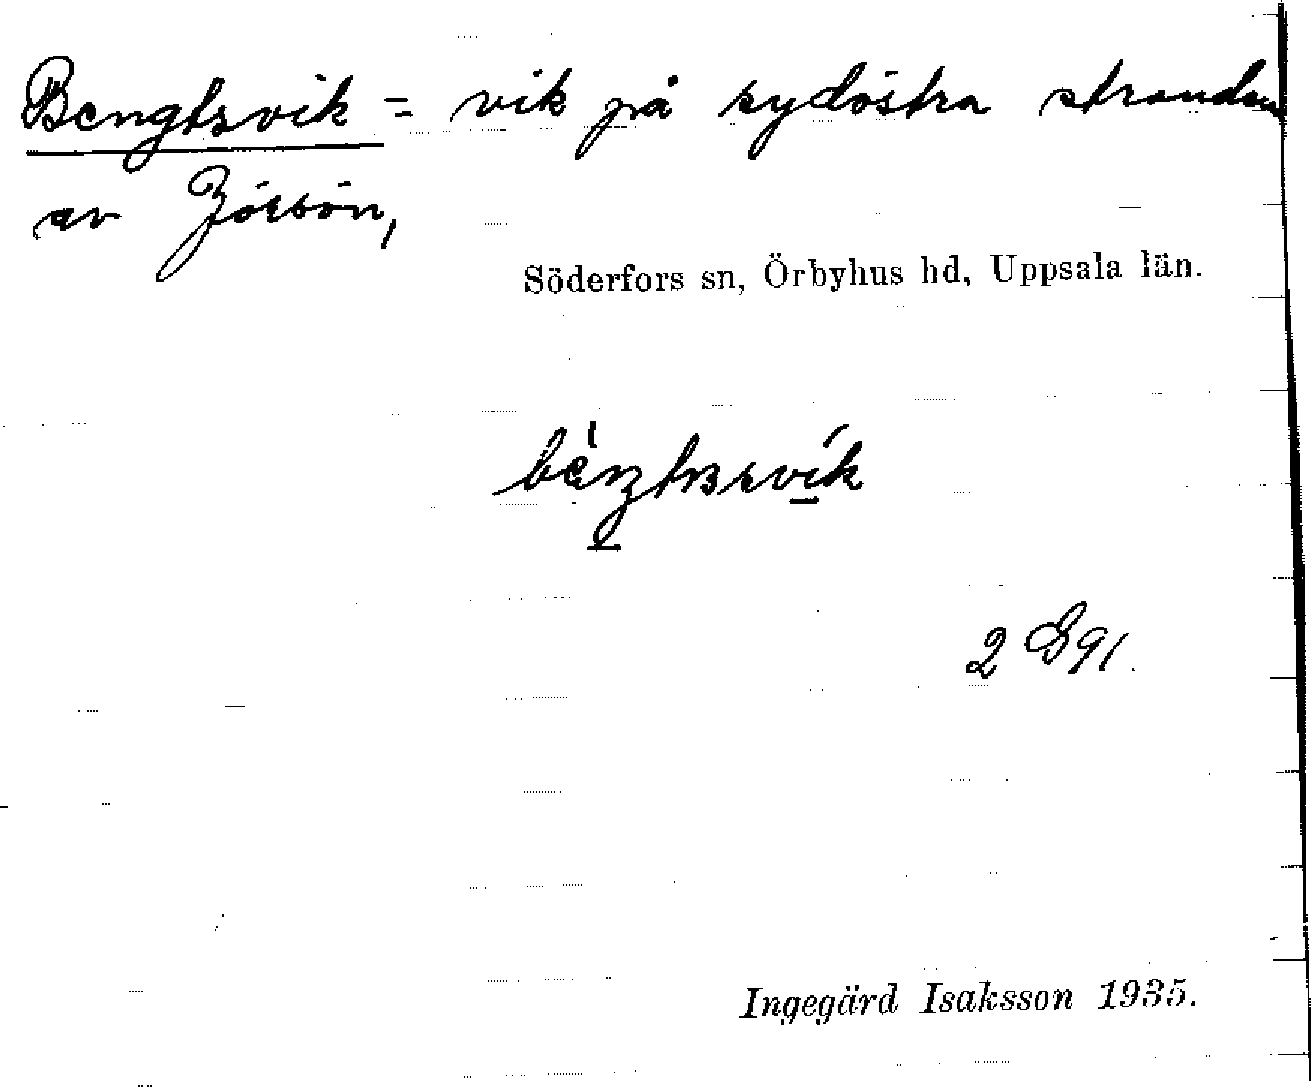 Bengtsvik = vik på sydöstra stranden
av
Söderfors sn, Örbyhus hd, Uppsala län.
2 G 91.
Ingegärd Isaksson 1935.